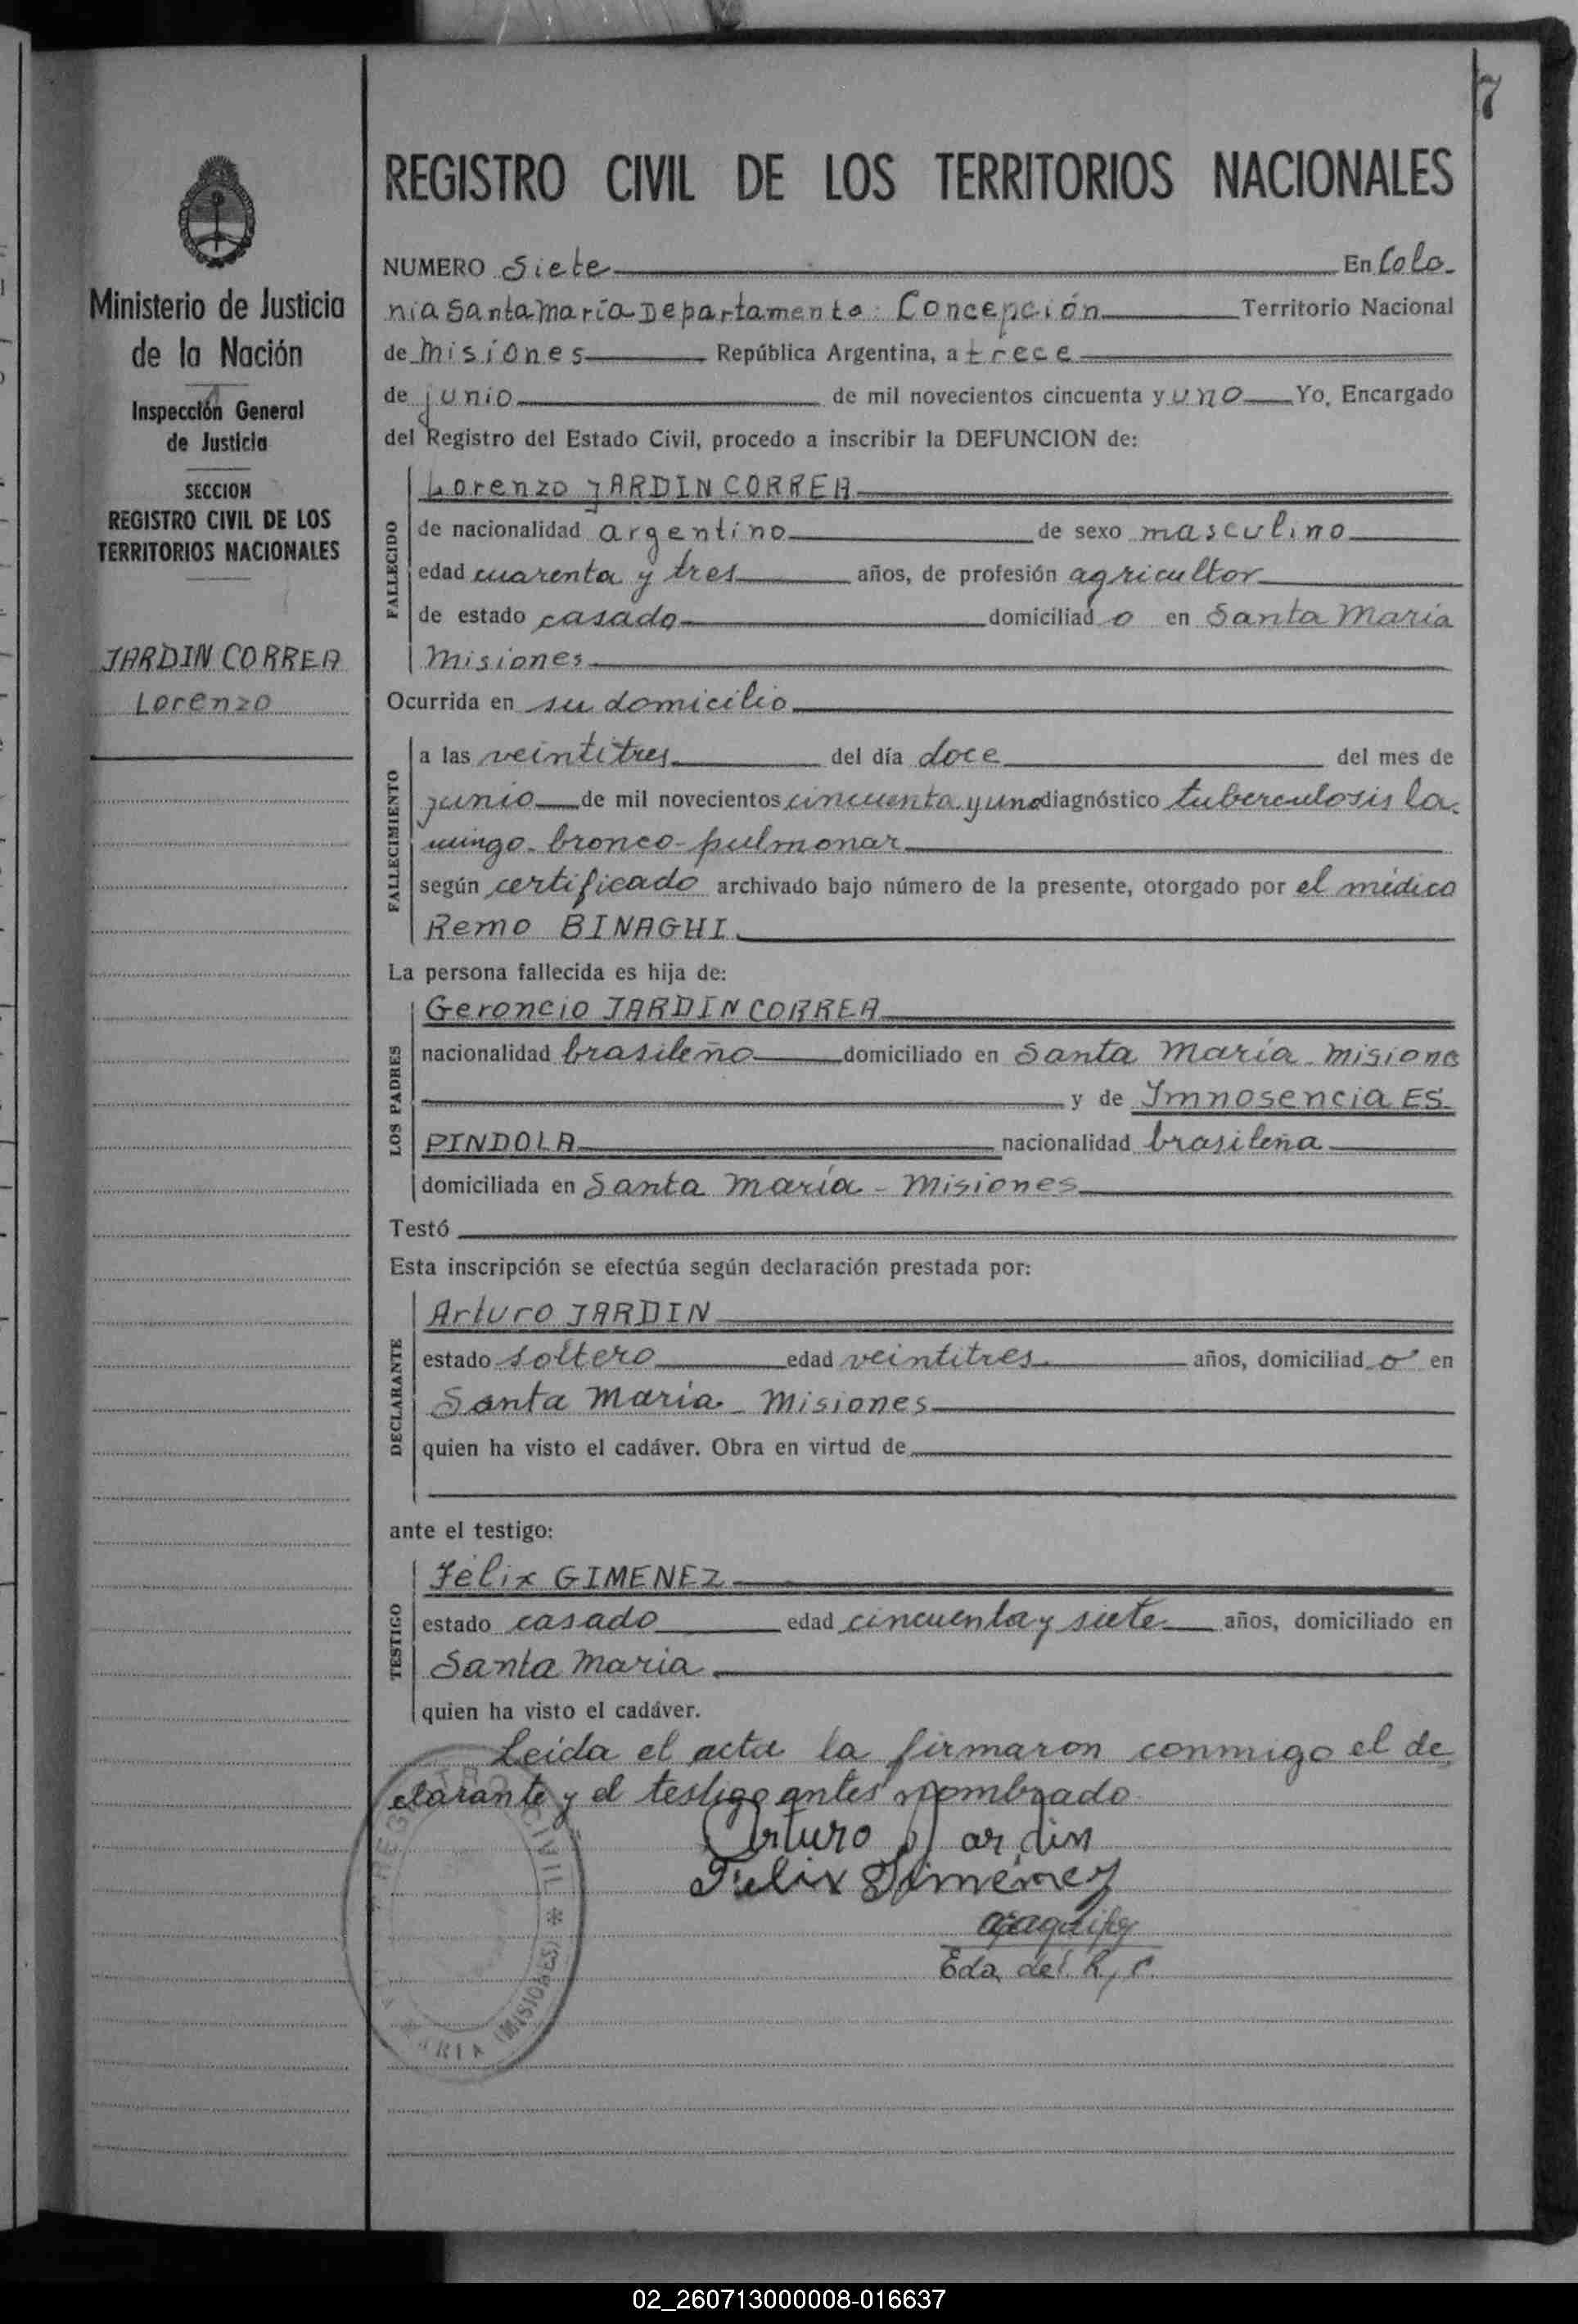 7
REGISTRO CIVIL DE LOS TERRITORIOS NACIONALES
Ministerio de Justicia
de la Nación
Inspección General
de Justicia
SECCION
REGISTRO CIVIL DE LOS
TERRITORIOS NACIONALES
JARDIN CORREA
Lorenzo
NUMERO Siete En Colo-
nia Santa María Departamento: Concepción Territorio Nacional
de Misiones República Argentina, a trece
de junio de mil novecientos cincuenta y uno Yo, Encargado
del Registro del Estado Civil, procedo a inscribir la DEFUNCION de:
FALLECIDO
Lorenzo JARDIN CORREA
de nacionalidad argentino de sexo masculino
edad cuarenta y tres años, de profesión agricultor
de estado casado domiciliad o en Santa María
Misiones
Ocurrida en su domicilio
FALLECIMIENTO
a las veintitres del día doce del mes de
junio de mil novecientos cincuenta y uno diagnóstico tuberculosis la-
ringo-bronco-pulmonar
según certificado archivado bajo número de la presente, otorgado por el médico
Remo BINAGHI
La persona fallecida es hija de:
LOS PADRES
Geroncio JARDIN CORREA
nacionalidad brasileño domiciliado en Santa María-Misiones
y de Imnosencia ES
PINDOLA nacionalidad brasileña
domiciliada en Santa María - Misiones
Testó
Esta inscripción se efectúa según declaración prestada por:
DECLARANTE
Arturo JARDIN
estado soltero edad veintitres años, domiciliad o en
Santa María-Misiones
quien ha visto el cadáver. Obra en virtud de
ante el testigo:
TESTIGO
Félix GIMENEZ
estado casado edad cincuenta y siete años, domiciliado en
Santa María
quien ha visto el cadáver.
Leída el acta la firmaron conmigo el de-
clarante y el testigo antes nombrado
Arturo Jardin
Felix Gimenez
Eda del R, C.
REGISTRO CIVIL * (MISIONES)
02_260713000008-016637